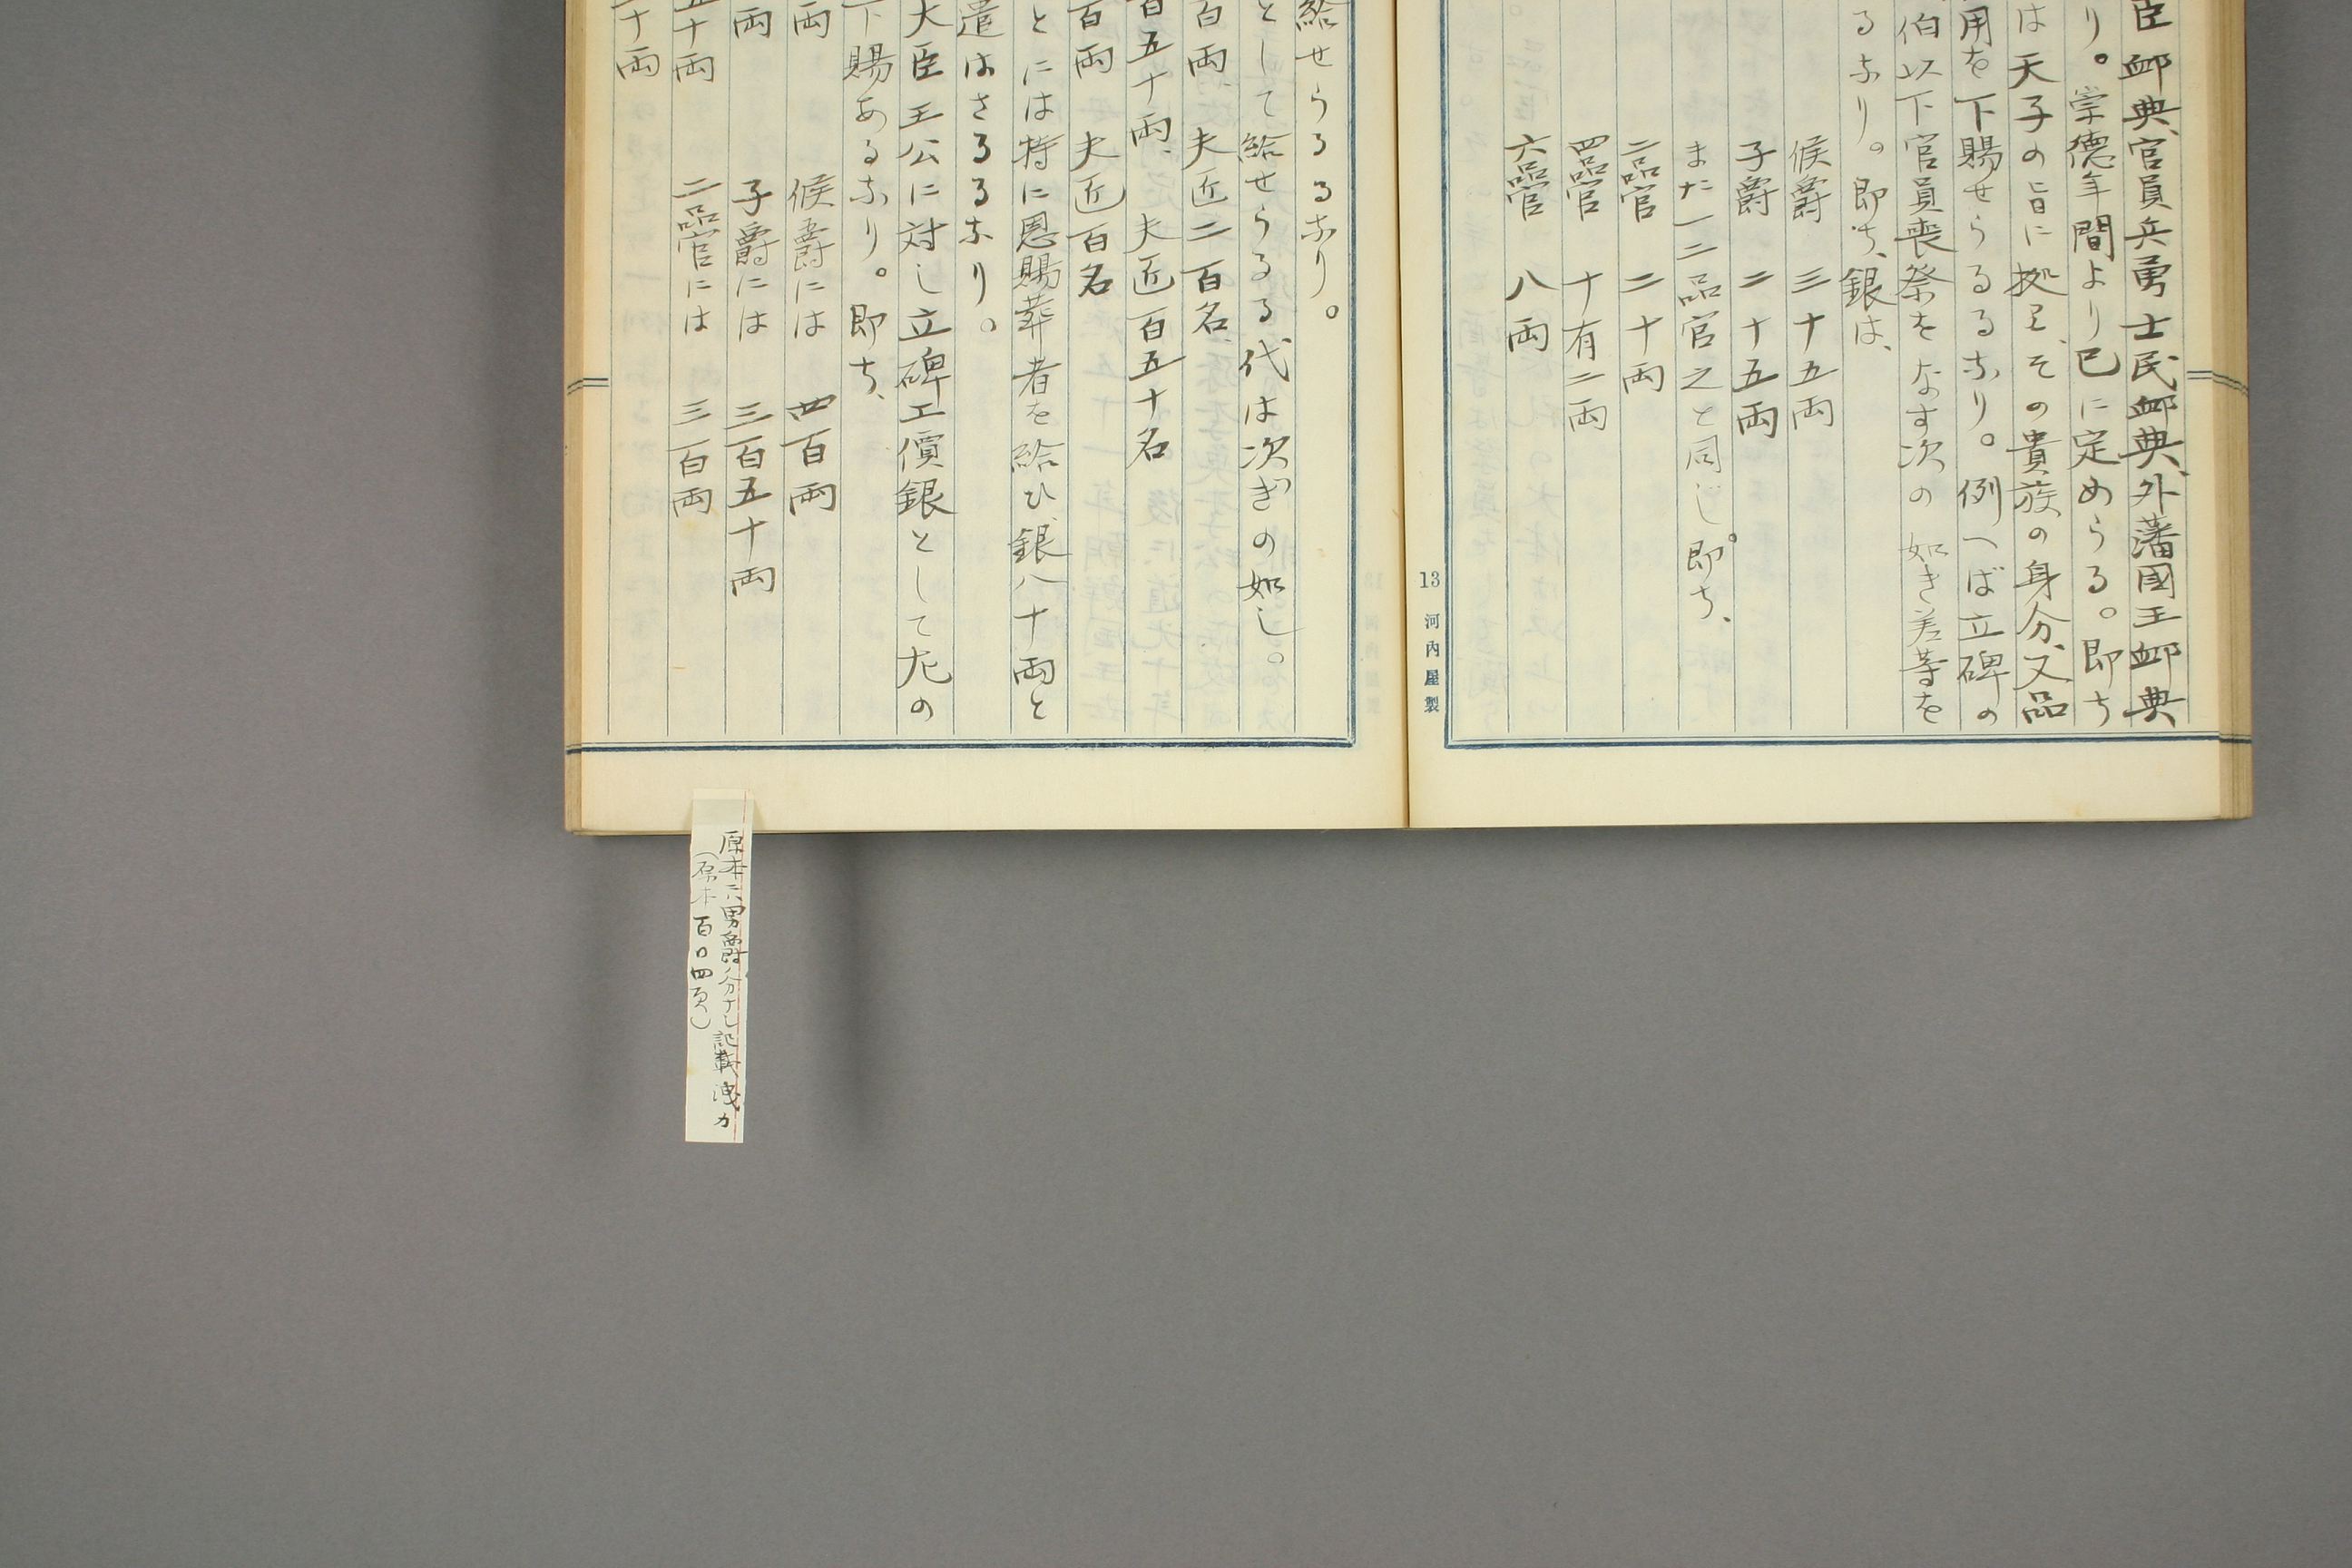 臣卹典、官員兵勇士民卹典、外藩國王卹典
り。崇德年間より已に定めらる。即ち
は天子の旨に拠りて、その貴族の身分、又品
用を下賜せらるるなり。例へば立碑の
伯以下官員喪祭をなす次の如き差等を
るなり。即ち、銀は、
候爵　三十五両
子爵　二十五両
また一二品官之と同じ。即ち、
二品官　二十両
四品官　十有二両
六品官　八両
13 河内屋製
給せらるるなり。
として給せらるる代は次ぎの如し。
百両、夫匠二百名、
百五十両、夫匠百五十名
百両　夫匠百名
とには特に恩賜葬者を給ひ、銀八十両と
遣はさるるなり。
大臣王公に対し立碑工價銀として尤の
下賜あるなり。即ち、
両　候爵には　四百両
両　子爵には　三百五十両
五十両　二品官には　三百両
十両
原本ニハ男爵ノ分ナシ記載洩カ
(原本百〇四頁)